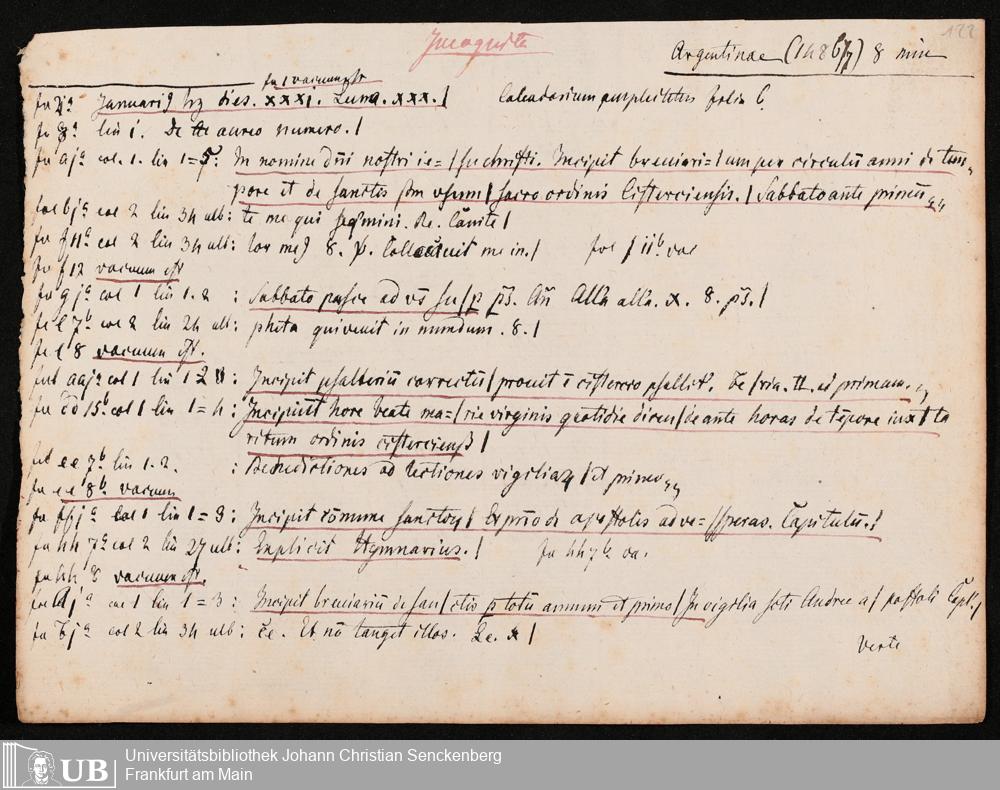 Incognita
122
Argentinae (1486/7) 8 min
fo 1 vacuum est
fo 2ª Januari9 hz dies. xxxj. Luna. xxx. | Calendarium amplectitur folia 6.
fo 8ª lin 1. De aureo numero. |
fo ajª col. 1. lin 1=5: In nomine dni nostri ie=|su christi. Incipit breviari=|um per circulū anni de tem-
pore et de sanctis s̄m usum | sacro ordinis Cisterciensis. | Sabbato ante primū
col 2 lin 34 ult: te me qui Re. Cāvite |
col 2 lin 34 ult: 8. me in. | fol f 11b vac
fo f 12 vacuum est
fo gjª col 1 lin 1. 2 : Sabbato pasce ad vs̄ Añ Alla alla. x. 8. ps̄. |
col 2 lin 24 ult: pheta qui venit in mundum. 8. |
fo l 8 vacuum est.
fol aajª col 1 lin 1 2 : Incipit psalteriū correctū | prout ī cistercio psallit. Fe|ria. II. ad primam.
15b col 1 lin 1=4: Incipiūt hore beate ma=|rie virginis quotidie dicen|de ante horas de tēpore iuxta
ritum ordinis cisterciens |
fol ee 7b lin 1. 2. : Benedictiones ad lectiones vigilia | et primo
fo ee 8b. vacuum
jª col 1 lin 1=3: Incipit cōmune sanctor | Et prīo de apostolis ad ve=|speras. Capitulū.
fo hh 7ª col 2 lin 27 ult: Explicit Hymnarius. | fo hh 7b va.
fo hh 8 vacuum est.
fol Ajª col 1 lin 1=3: Incipit breviariū de san|ctis p totū annum et primo | In vigilia scti Andree a|postoli Capl. |
col 2 lin 34 ult: ce. Et nō tanget illos. Re. x |
Verte
Universitätsbibliothek Johann Christian Senckenberg
Frankfurt am Main
UB